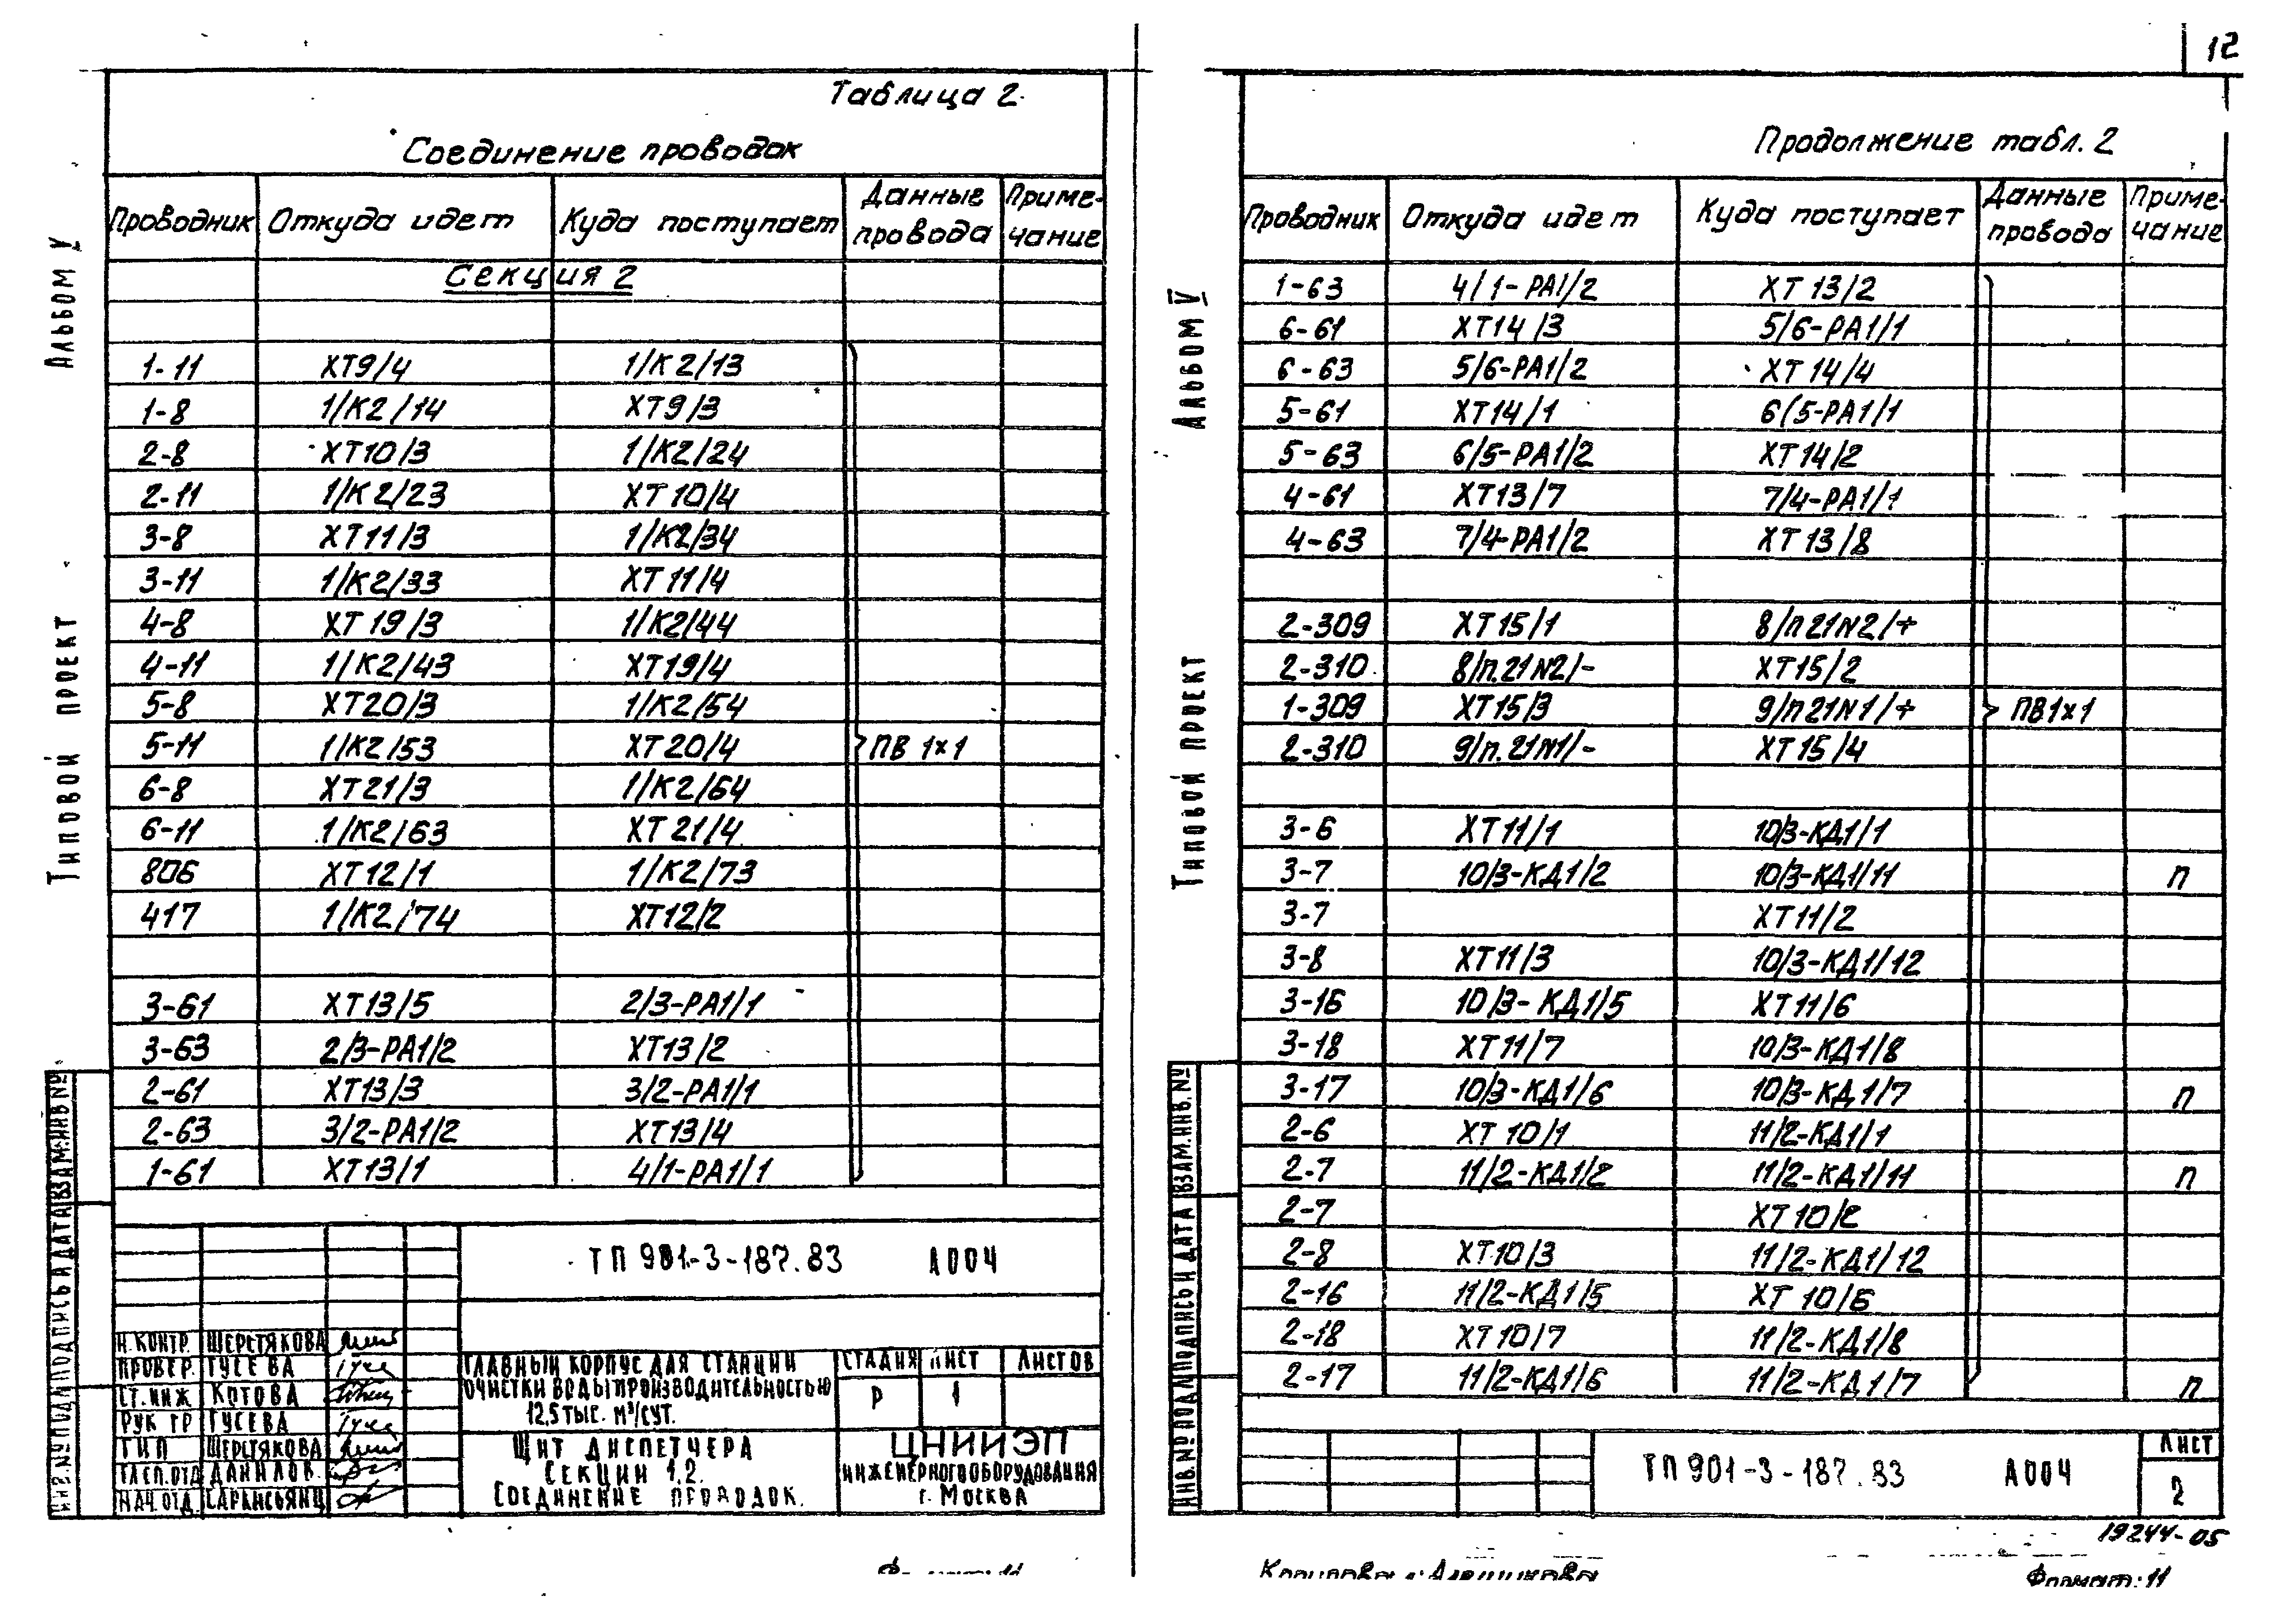 12
Таблица 2
Соединение проводок
Проводник Откуда идет Куда поступает Данные провода Примечание
Секция 2
1-11 ХТ9/4 1/К2/13
1-8 1/К2/14 ХТ9/3
2-8 ХТ10/3 1/К2/24
2-11 1/К2/23 ХТ10/4
3-8 ХТ11/3 1/К2/34
3-11 1/К2/33 ХТ11/4
4-8 ХТ19/3 1/К2/44
4-11 1/К2/43 ХТ19/4
5-8 ХТ20/3 1/К2/54
5-11 1/К2/53 ХТ20/4 ПВ 1х1
6-8 ХТ21/3 1/К2/64
6-11 1/К2/63 ХТ21/4
806 ХТ12/1 1/К2/73
417 1/К2/74 ХТ12/2
3-61 ХТ13/5 2/3-РА1/1
3-63 2/3-РА1/2 ХТ13/2
2-61 ХТ13/3 3/2-РА1/1
2-63 3/2-РА1/2 ХТ13/4
1-61 ХТ13/1 4/1-РА1/1
ТП 901-3-187.83 А004
Н.КОНТР. ШЕРСТЯКОВА
ПРОВЕР. ГУСЕВА
СТ.ИНЖ КОТОВА
РУК ГР ГУСЕВА
ГИП ШЕРСТЯКОВА
ГЛ.СП.ОТД ДАНИЛОВ.
НАЧ.ОТД.
ГЛАВНЫЙ КОРПУС ДЛЯ СТАНЦИИ
ОЧИСТКИ ВОДЫ ПРОИЗВОДИТЕЛЬНОСТЬЮ
12,5 ТЫС. М³/СУТ.
СТАДИЯ ЛИСТ ЛИСТОВ
Р 1
ЩИТ ДИСПЕТЧЕРА
СЕКЦИИ 1,2.
СОЕДИНЕНИЕ ПРОВОДОК.
ЦНИИЭП
ИНЖЕНЕРНОГО ОБОРУДОВАНИЯ
г. МОСКВА
АЛЬБОМ V
ТИПОВОЙ ПРОЕКТ
ИНВ.№ ПОДЛ ПОДПИСЬ И ДАТА ВЗАМ.ИНВ №
Продолжение табл. 2
Проводник Откуда идет Куда поступает Данные провода Примечание
1-63 4/1-РА1/2 ХТ13/2
6-61 ХТ14/3 5/6-РА1/1
6-63 5/6-РА1/2 ХТ14/4
5-61 ХТ14/1 6/5-РА1/1
5-63 6/5-РА1/2 ХТ14/2
4-61 ХТ13/7 7/4-РА1/1
4-63 7/4-РА1/2 ХТ13/8
2-309 ХТ15/1 8/п21№2/+
2-310 8/п.21№2/- ХТ15/2
1-309 ХТ15/3 9/п21№1/+ ПВ1х1
2-310 9/п.21№1/- ХТ15/4
3-6 ХТ11/1 10/3-КД1/1
3-7 10/3-КД1/2 10/3-КД1/11 п
3-7 ХТ11/2
3-8 ХТ11/3 10/3-КД1/12
3-16 10/3-КД1/5 ХТ11/6
3-18 ХТ11/7 10/3-КД1/8
3-17 10/3-КД1/6 10/3-КД1/7 п
2-6 ХТ10/1 11/2-КД1/1
2-7 11/2-КД1/2 11/2-КД1/11 п
2-7 ХТ10/2
2-8 ХТ10/3 11/2-КД1/12
2-16 11/2-КД1/5 ХТ10/6
2-18 ХТ10/7 11/2-КД1/8
2-17 11/2-КД1/6 11/2-КД1/7 п
ТП 901-3-187.83 А004
ЛИСТ
2
19244-05
Формат: 11
АЛЬБОМ V
ТИПОВОЙ ПРОЕКТ
ИНВ.№ ПОДЛ ПОДПИСЬ И ДАТА ВЗАМ.ИНВ.№